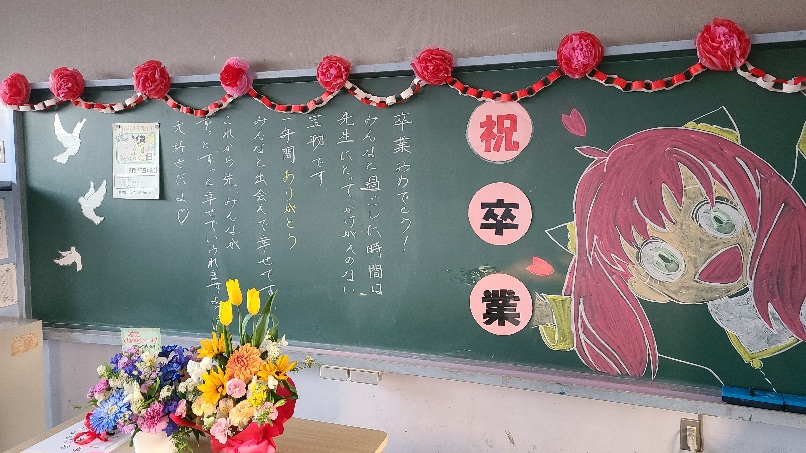 卒業おめでとう!
みんなと過ごした時間は
先生にとって、かけがえのない
宝物です。
一年間ありがとう
みんなと出会えて幸せです
これから先、みんなが
ずっとずっと幸せでいられますよ
大好きだよ♡
祝
卒
業